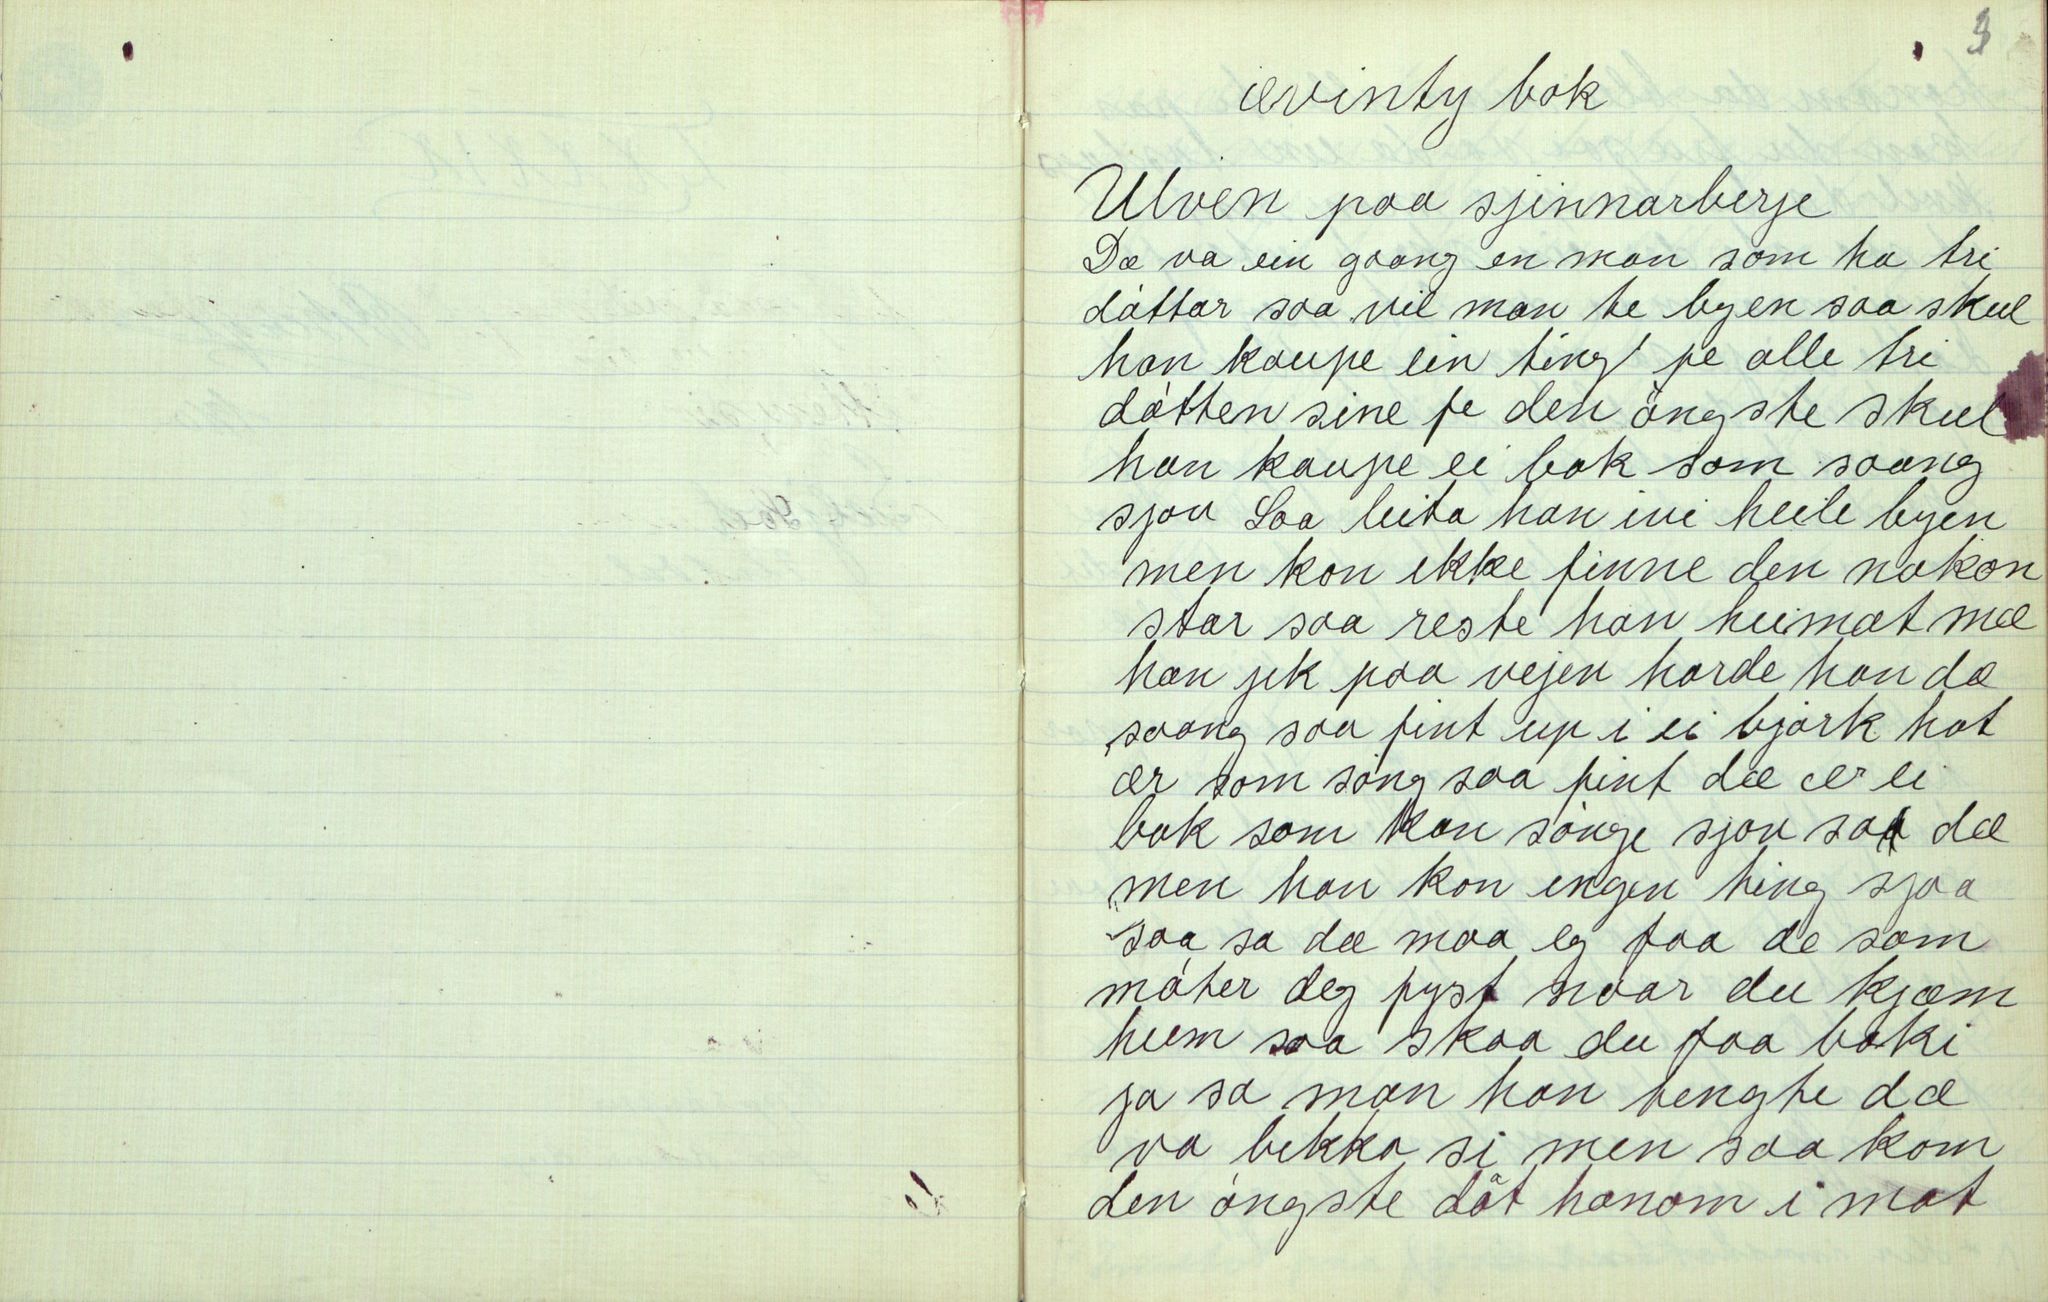 3
ævinty bok
Ulven paa sjinnarberje
Dæ va ein gaang en man som ha tri
dóttar saa vil man te byen saa skul
han kaupe ein ting fe alle tri
dótten sine fe den óngste skul
han kaupe ei bok som saang
sjøv Saa leita han ivi heile byen
men kon ikke finne den nokon
star saa reste han heimat mæ
han jek paa vejen horde han dæ
saang saa fint up i ei bjork hot
ær som sóng saa fint dæ ær ei
bok som kan sónge sjov saa dæ
men han kon engen ting sjaa
saa sa dæ maa eg faa de som
móter deg fyst naar du kjæm
heem saa skaa du faa boki
ja sa man han tengte dæ
va bikka si men saa kom
den óngste dót hanom i mot